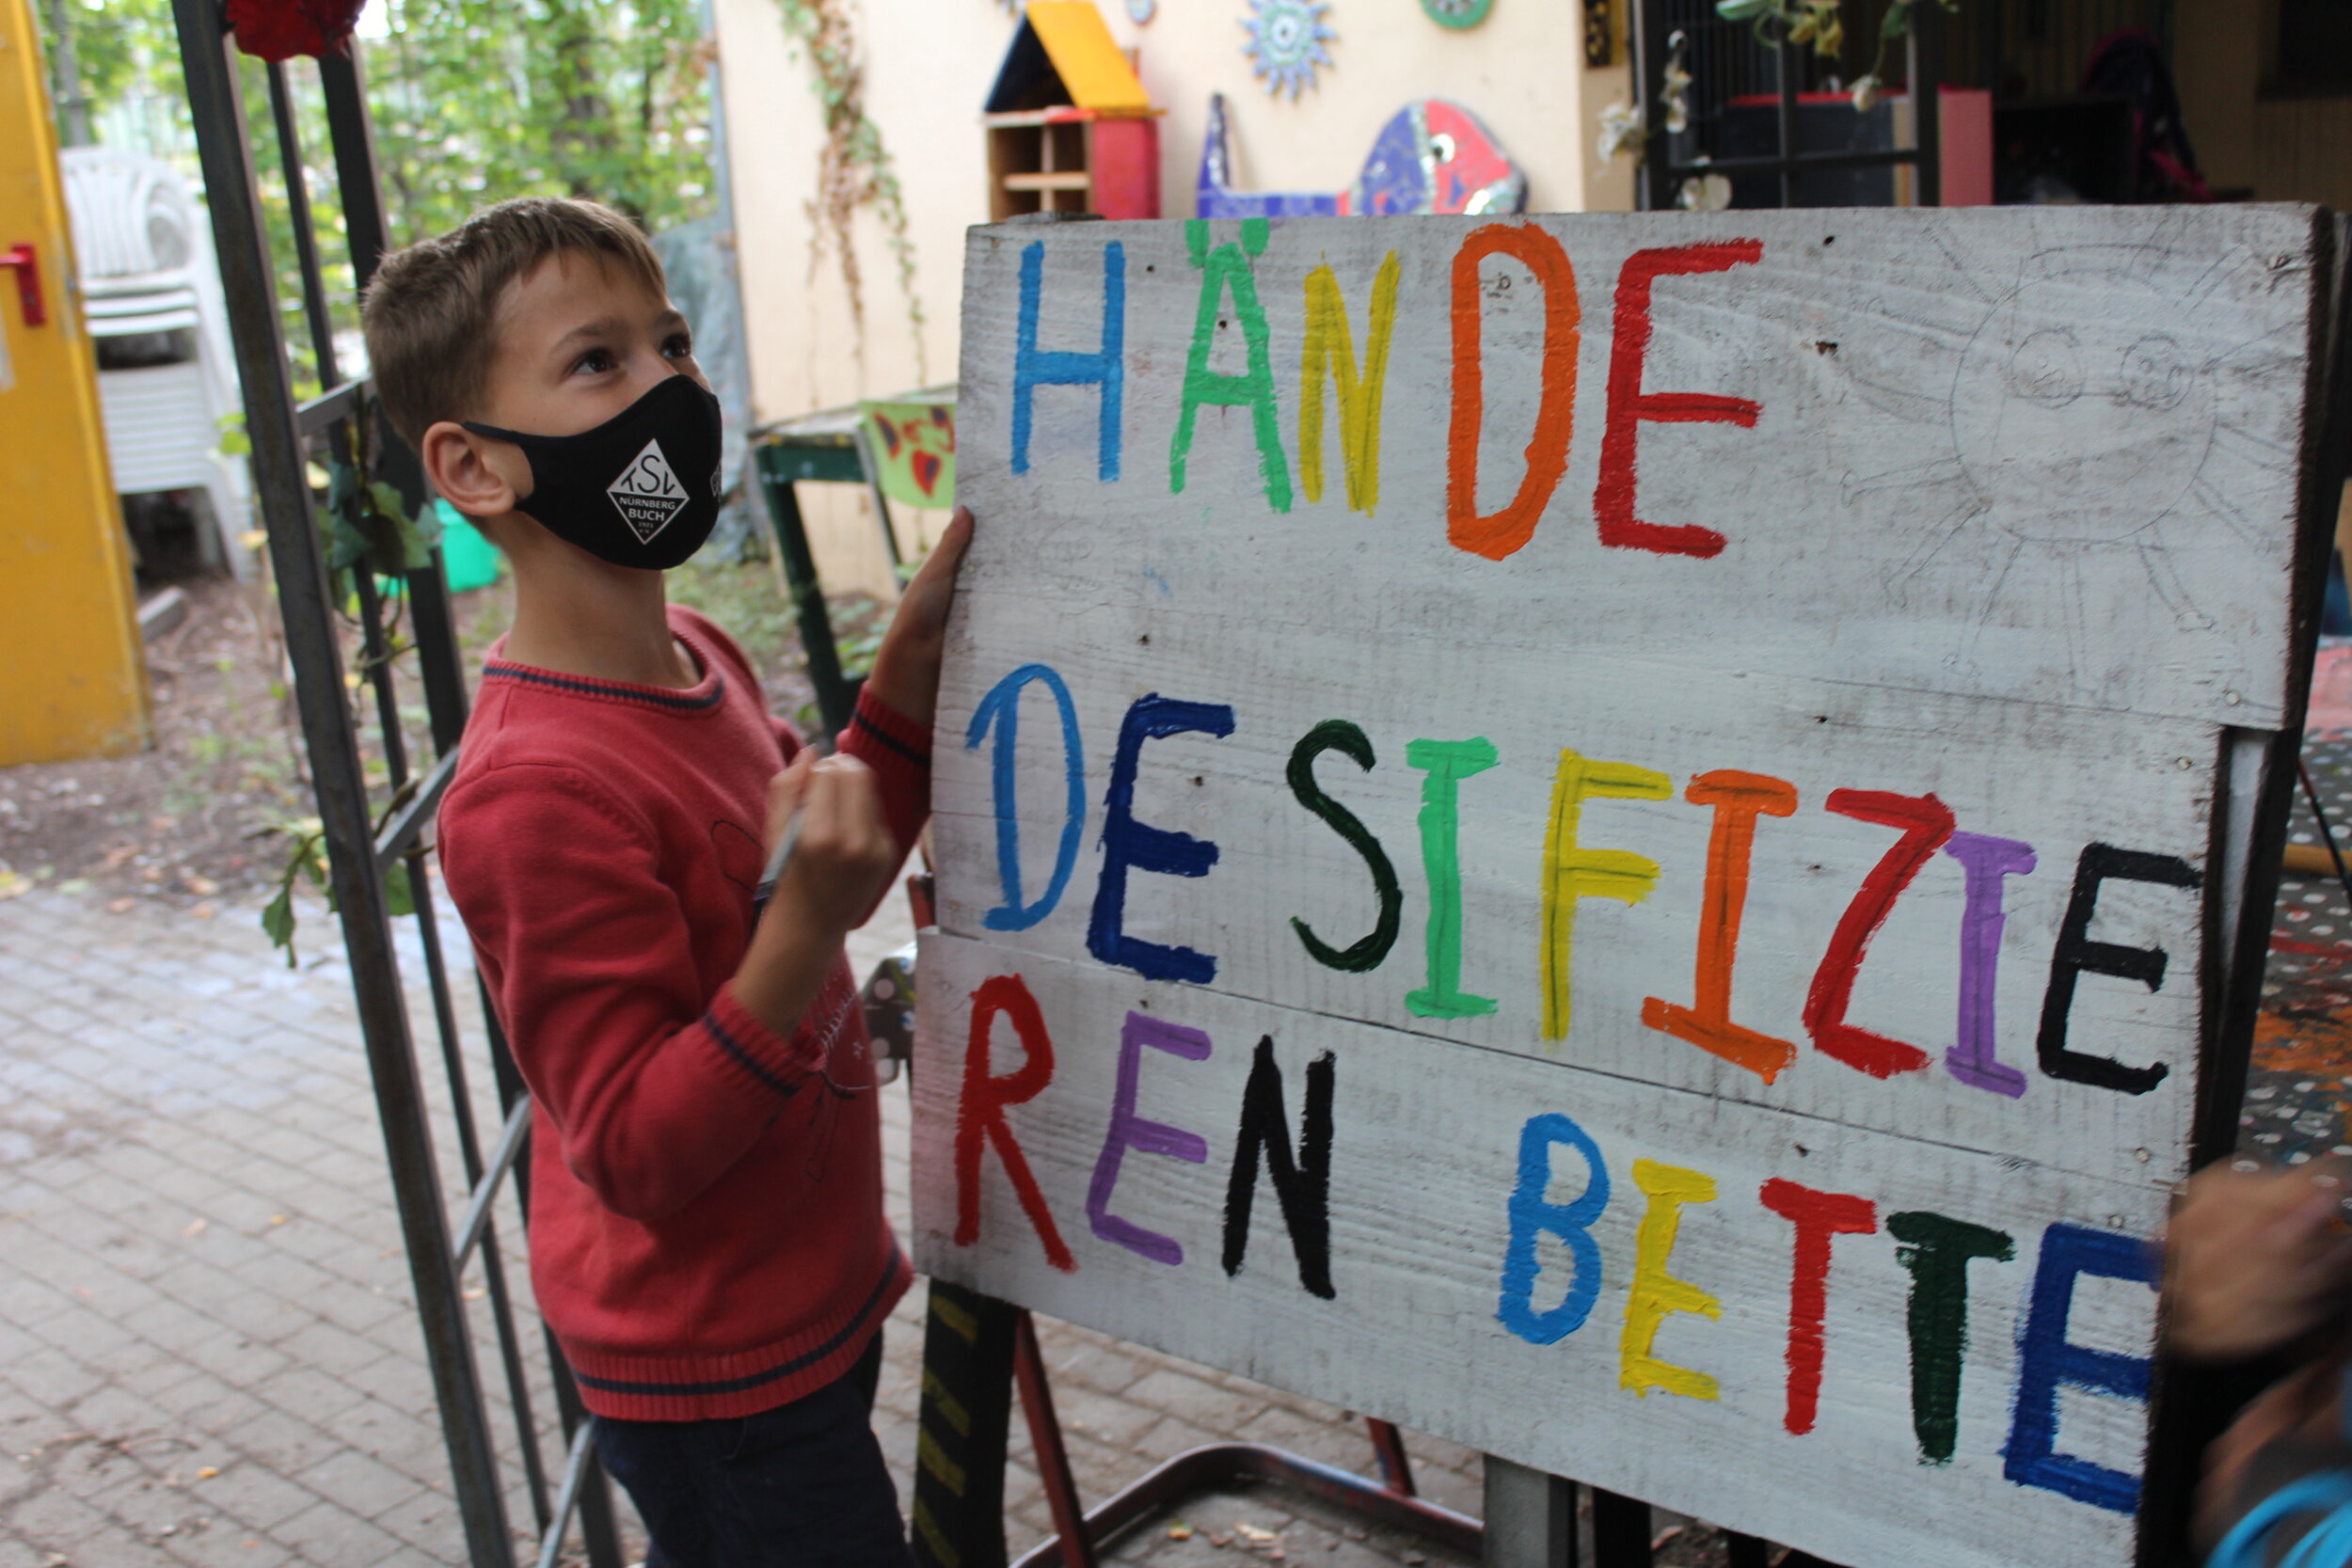 HÄNDE
DESIFIZIE
REN BETTE
TSV
NÜRNBERG
BUCH
1921
e.V.